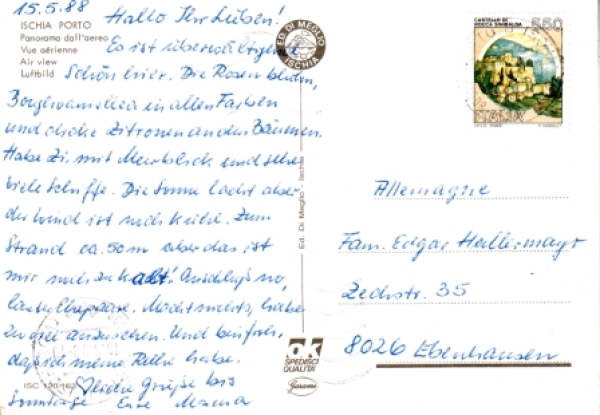 15.5.88
Hallo Ihr Lieben!
ISCHIA PORTO
Panorama dall'aereo
Vue aérienne
Air view
Luftbild
Es ist überwältigend
Schön hier. Die Rosen blühen,
in allen Farben
und dicke Zitronen an den Bäumen.
Habe Zi. mit Meerblick und sehe
viele Schiffe. Die Sonne lacht aber
der Wind ist noch kühl. Zum
Strand ca. 50 m aber das ist
mir noch zu kalt! Anschluß no,
lauter Ehepaare. Macht nichts, habe
zu
anzuschen. Und bin froh,
daß ich meine Ruhe habe.
ISC
Liebe Grüße bis
Sonntag Eure Mama
ED. DI MEGLIO
ISCHIA
Ed. Di Meglio - Ischia
ok
SPEDISCI
QUALITA'
CASTELLO DI
ROCCA SINIBALDA
550
ITALIA
Allemagne
Fam. Edgar Hallermayr
Zechstr. 35
8026 Ebenhausen